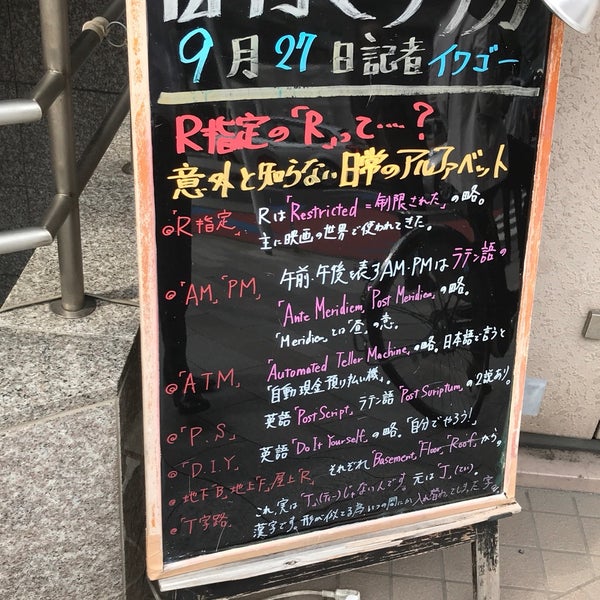 9月27日記者イワゴー
R指定の「R」って…?
意外と知らない日常のアルファベット
◎「R指定」 Rは「Restricted=制限された」の略。
主に映画の世界で使われてきた。
◎「AM」「PM」 午前・午後を表すAM・PMはラテン語の
「Ante Meridiem」「Post Meridiem」の略。
「Meridiem」とは「昼」の意。
◎「ATM」 「Automated Teller Machine」の略。日本語で言うと
「自動現金預け払い機」。
◎「P.S」 英語「Post Script」ラテン語「Post Suriptum」の2説あり。
◎「D.I.Y」 英語「Do It Yourself」の略。「自分でやろう!」
◎地下B、地上F、屋上R それぞれ「Basement」「Floor」「Roof」から。
◎丁字路 これ、実は「T」(ティー)じゃないんです。元は「丁」(てい)。
漢字です。形が似てる為いつの間にか入れ替わってしまった